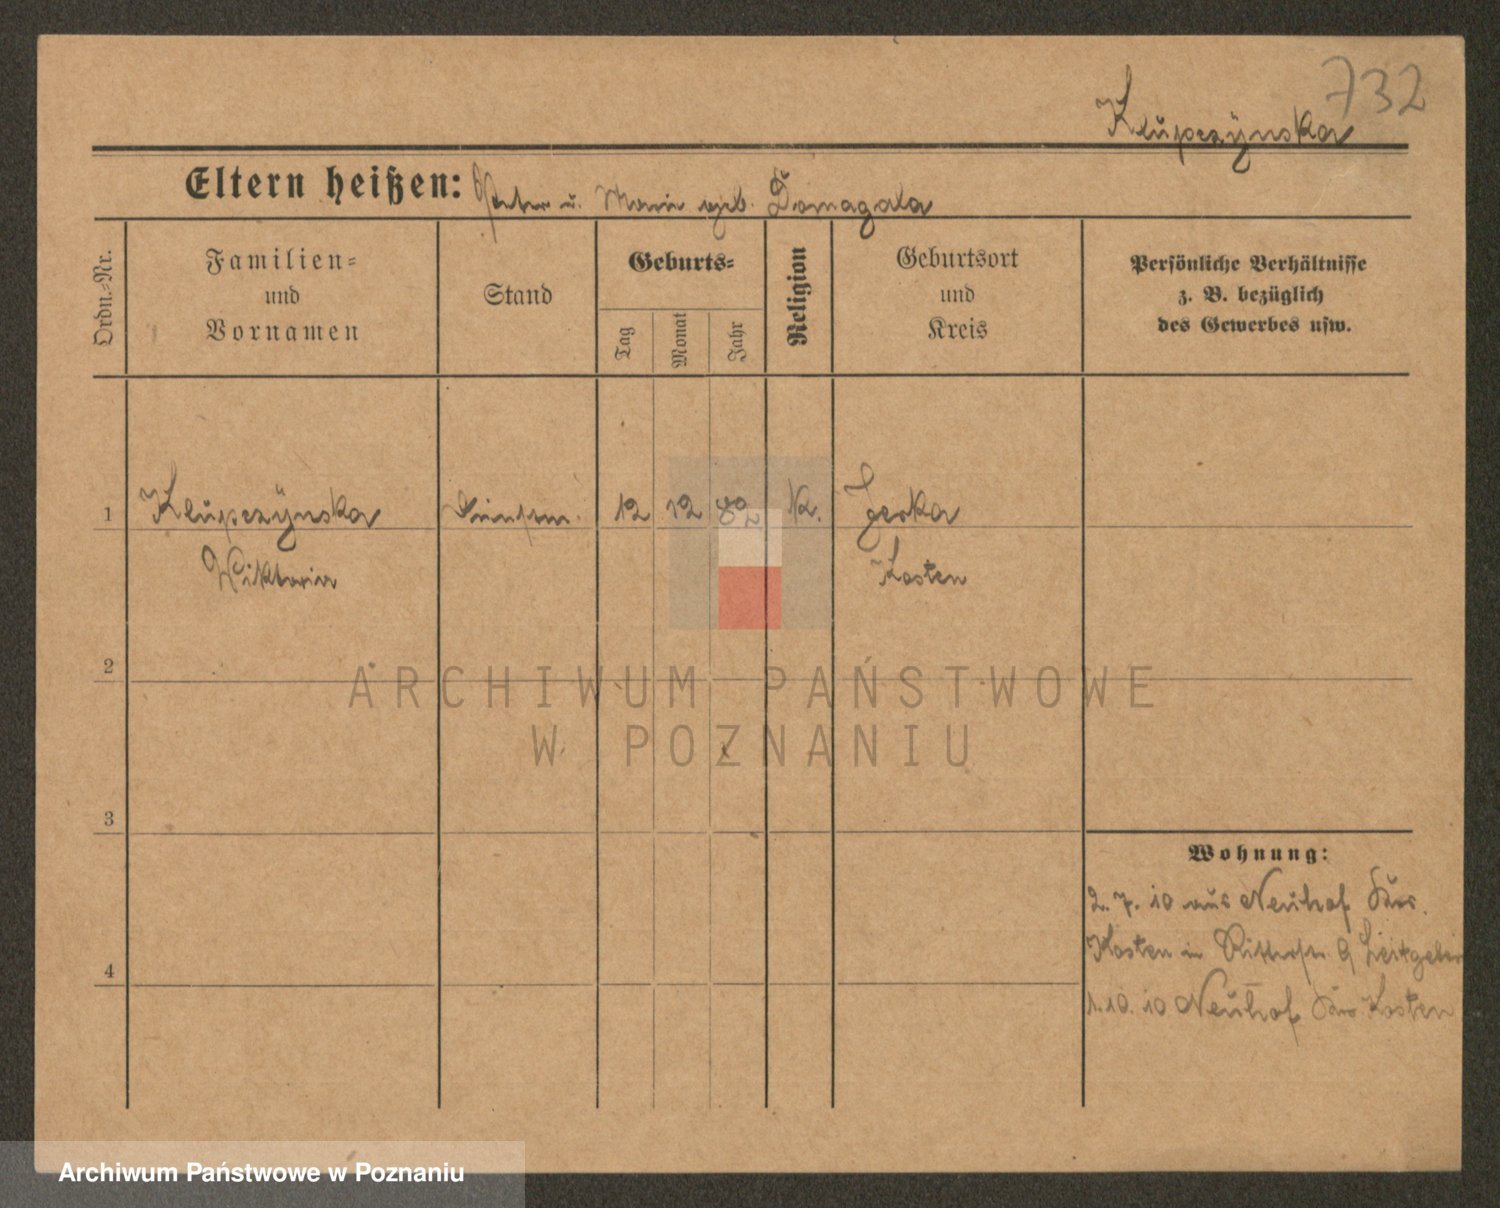 732
Klupczynska
Eltern heißen: Peter u. Marie geb. Domagala
Ordn.-Nr.
Familien-
und
Vornamen
Stand
Geburts-
Tag
Monat
Jahr
Religion
Geburtsort
und
Kreis
Persönliche Verhältnisse
z. B. bezüglich
des Gewerbes usw.
1 Klupczynska 12 12 82 K. Jerka
Wiktoria Kosten
2
ARCHIWUM PAŃSTWOWE
W POZNANIU
3
Wohnung:
2. 7. 10 aus Neuhof Krs.
Kosten in Ritterstr. 9 Leitgeber
4
1. 10. 10 Neuhof Krs Kosten
Archiwum Państwowe w Poznaniu